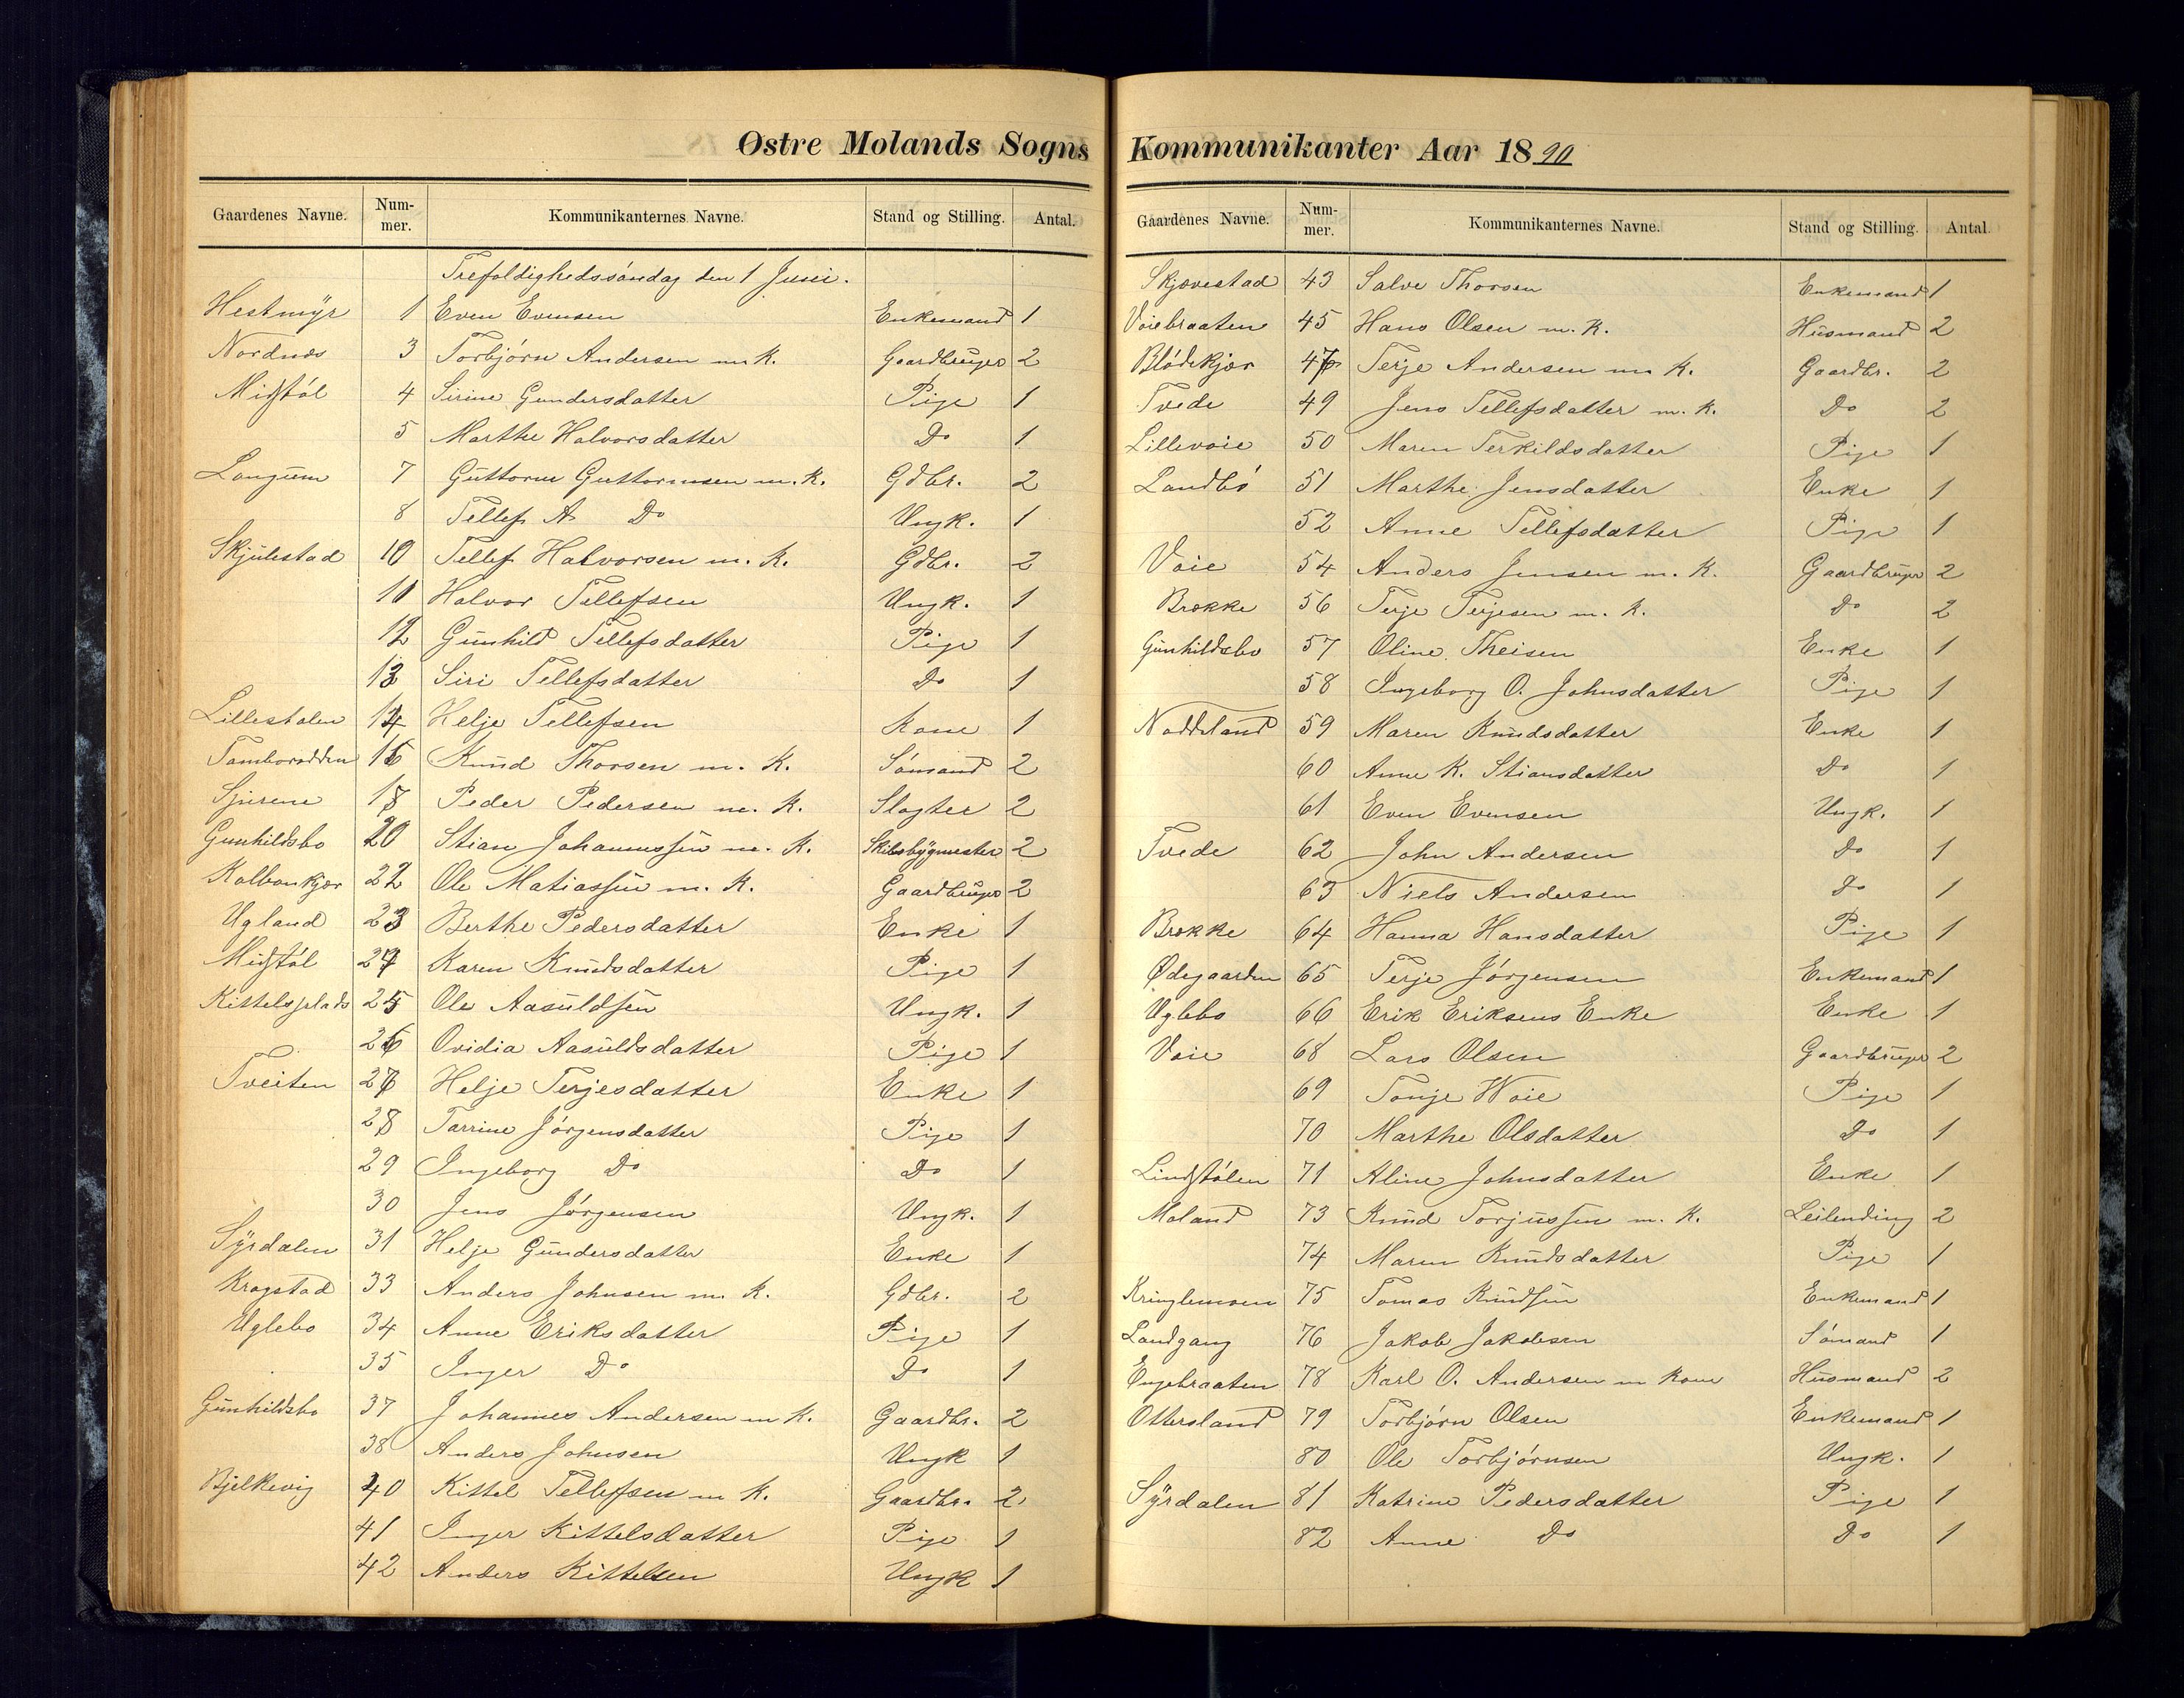 Østre Molands Sogns
Gaardenes Navne. Nummer. Kommunikanternes Navne. Stand og Stilling. Antal.
Trefoldighedssöndag den 1 Juni.
Hestmÿr 1 Even Evensen Enkemand 1
Nordnæs 3 Torbjörn Andersen m K. Gaardbruger 2
Midstöl 4 Sirine Gundersdatter Pige 1
5 Marthe Halvorsdatter Do 1
Langum 7 Guttorm Guttormsen m. K. Gdbr. 2
8 Tellef A Do Ungk. 1
Skjulestad 10 Tellef Halvorsen m. K. Gdbr. 2
11 Halvor Tellefsen Ungk. 1
12 Gunhild Tellefsdatter Pige 1
13 Siri Tellefsdatter Do 1
Lillestølen 14 Helje Tellefsen Kone 1
Tamborodden 16 Knud Thorsen m. K. Sömand 2
18 Peder Pedersen m. K. Slagter 2
Gunhildsbo 20 Stian Johannessen m. K. Skibsbÿgmester 2
Kalbonkjær 22 Ole Matiassen m. K. Gaardbruger 2
Ugland 23 Berthe Pedersdatter Enke 1
Midstöl 24 Karen Knudsdatter Pige 1
Kittelsplads 25 Ole Aasuldsen Ungk. 1
26 Ovidia Aasuldsdatter Pige 1
Tveiten 27 Helje Terjesdatter Enke 1
28 Tarrine Jörgensdatter Pige 1
29 Ingeborg Do Do 1
30 Jens Jörgensen Ungk. 1
Sÿrdalen 31 Helje Gundersdatter Enke 1
Kragstad 33 Anders Johnsen m. K. Gdbr. 2
Uglebo 34 Anne Eriksdatter Pige 1
35 Inger Do Do 1
Gunhildsbo 37 Johannes Andersen m K. Gaardbr. 2
38 Anders Johnsen Ungk 1
Bjelkevig 40 Kittel Tellefsen m K. Gaardbr. 2
41 Inger Kittelsdatter Pige 1
42 Anders Kittelsen Ungk 1
Kommunikanter Aar 1890
Gaardenes Navne. Nummer. Kommunikanternes Navne. Stand og Stilling. Antal.
Skjævestad 43 Salve Thorsen Enkemand 1
Voiebraaten 45 Hans Olsen m. K. Husmand 2
Blödekjær 47 Terje Andersen m K. Gaardbr. 2
Tvede 49 Jens Tellefsdatter m. K. Do 2
Lillevoie 50 Maren Terkildsdatter Pige 1
Landbö 51 Marthe Jensdatter Enke 1
52 Anne Tellefsdatter Pige 1
Voie 54 Anders Jensen m. K. Gaardbruger 2
Brække 56 Terje Terjesen m. K. Do 2
Gunhildsbo 57 Oline Theisen Enke 1
58 Ingeborg O. Johnsdatter Pige 1
Næddeland 59 Maren Knudsdatter Enke 1
60 Anne K. Stiansdatter Do 1
61 Even Evensen Ungk. 1
Tvede 62 John Andersen Do 1
63 Niels Andersen Do 1
Brække 64 Hanna Hansdatter Pige 1
Ødegaarden 65 Terje Jörgensen Enkemand 1
Uglebo 66 Erik Eriksens Enke Enke 1
Voie 68 Lars Olsen Gaardbruger 2
69 Tonje Woie Pige 1
70 Marthe Olsdatter Do 1
Lindstölen 71 Aline Johnsdatter Enke 1
Moland 73 Knud Torjussen m. K. Leilending 2
74 Maren Knudsdatter Pige 1
Kringlemoen 75 Tomas Knudsen Enkemand 1
Landgang 76 Jakob Jakobsen Sömand 1
Engebraaten 78 Karl O. Andersen m Kone Husmand 2
Ottersland 79 Torbjörn Olsen Enkemand 1
80 Ole Torbjörnsen Ungk. 1
Sÿrdalen 81 Katrine Pedersdatter Pige 1
82 Anne Do Do 1